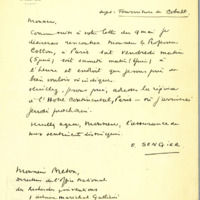 objet: Fourniture de Cobalt
Monsieur,
Comme suite à votre lettre du 4 mai je
désirerais rencontrer Monsieur le Professeur
Cotton, à Paris soit vendredi matin
(5 juin) soit samedi matin (6 juin) à
l'heure et endroit que je vous prie de
bien vouloir m'indiquer.
Veuillez, je vous prie, adresser la réponse
à l'Hotel Continental, Paris – où j'arriverai
jeudi prochain.
Veuillez agréer, Monsieur, l'assurance de
mes sentiments distingués.
E. SENGIER
Monsieur Breton,
Directeur de l'Office National
des Recherches & Inventions
1 avenue Maréchal Gallieni